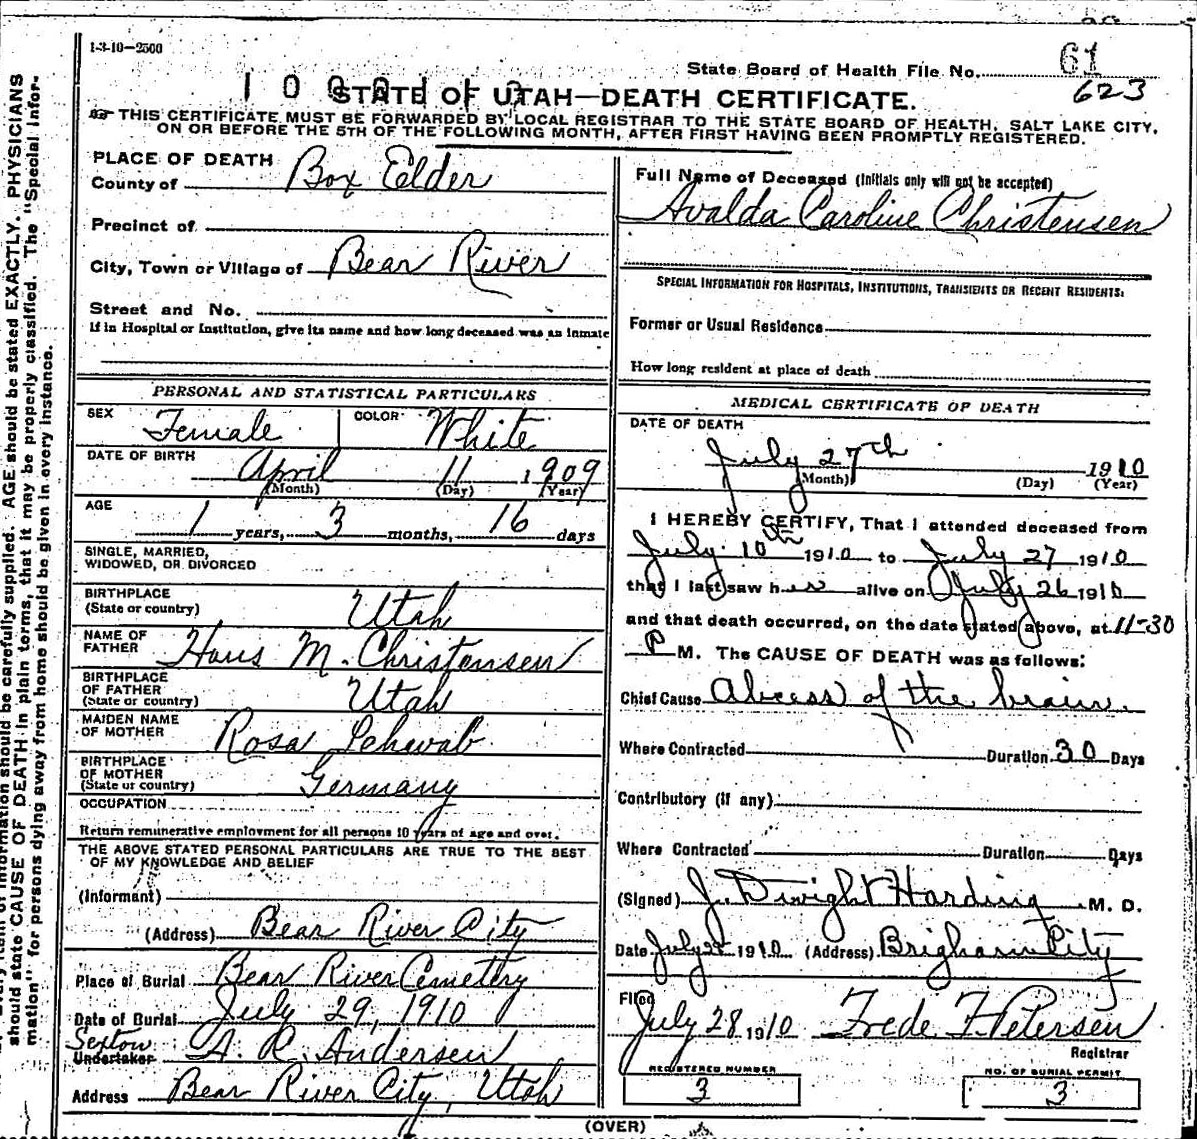 1-3-10-2500
State Board of Health File No. 61
623
STATE OF UTAH—DEATH CERTIFICATE.
THIS CERTIFICATE MUST BE FORWARDED BY LOCAL REGISTRAR TO THE STATE BOARD OF HEALTH, SALT LAKE CITY,
ON OR BEFORE THE 5TH OF THE FOLLOWING MONTH, AFTER FIRST HAVING BEEN PROMPTLY REGISTERED.
PLACE OF DEATH
County of Box Elder
Precinct of
City, Town or Village of Bear River
Street and No.
If in Hospital or Institution, give its name and how long deceased was an inmate
PERSONAL AND STATISTICAL PARTICULARS
SEX Female COLOR White
DATE OF BIRTH April 11 1909
(Month) (Day) (Year)
AGE 1 years, 3 months, 16 days
SINGLE, MARRIED,
WIDOWED, OR DIVORCED
BIRTHPLACE
(State or country) Utah
NAME OF
FATHER Hans M. Christensen
BIRTHPLACE
OF FATHER
(State or country) Utah
MAIDEN NAME
OF MOTHER Rosa Schwab
BIRTHPLACE
OF MOTHER
(State or country) Germany
OCCUPATION
Return remunerative employment for all persons 10 years of age and over.
THE ABOVE STATED PERSONAL PARTICULARS ARE TRUE TO THE BEST
OF MY KNOWLEDGE AND BELIEF
(Informant)
(Address) Bear River City
Place of Burial Bear River Cemetery
Date of Burial July 29, 1910
Sexton
Undertaker A. R. Andersen
Address Bear River City, Utah
Full Name of Deceased (Initials only will not be accepted)
Avalda Caroline Christensen
SPECIAL INFORMATION FOR HOSPITALS, INSTITUTIONS, TRANSIENTS OR RECENT RESIDENTS:
Former or Usual Residence
How long resident at place of death
MEDICAL CERTIFICATE OF DEATH
DATE OF DEATH
July 27th 1910
(Month) (Day) (Year)
I HEREBY CERTIFY, That I attended deceased from
July 10th 1910 to July 27 1910
that I last saw her alive on July 26 1910
and that death occurred, on the date stated above, at 11-30
P M. The CAUSE OF DEATH was as follows:
Chief Cause Abcess of the brain.
Where Contracted Duration 30 Days
Contributory (if any)
Where Contracted Duration Days
(Signed) J. Dwight Harding M. D.
Date July 1910 (Address) Brigham City
Filed
July 28 1910 Frede F. Petersen
Registrar
REGISTERED NUMBER
3
NO. OF BURIAL PERMIT
3
(OVER)
information should be carefully supplied. AGE should be stated EXACTLY. PHYSICIANS
should state CAUSE OF DEATH in plain terms, that it may be properly classified. The "Special Infor-
mation" for persons dying away from home should be given in every instance.